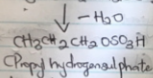 ↓ -H₂O
CH₃CH₂CH₂OSO₃H
(Propyl hydrogensulphate